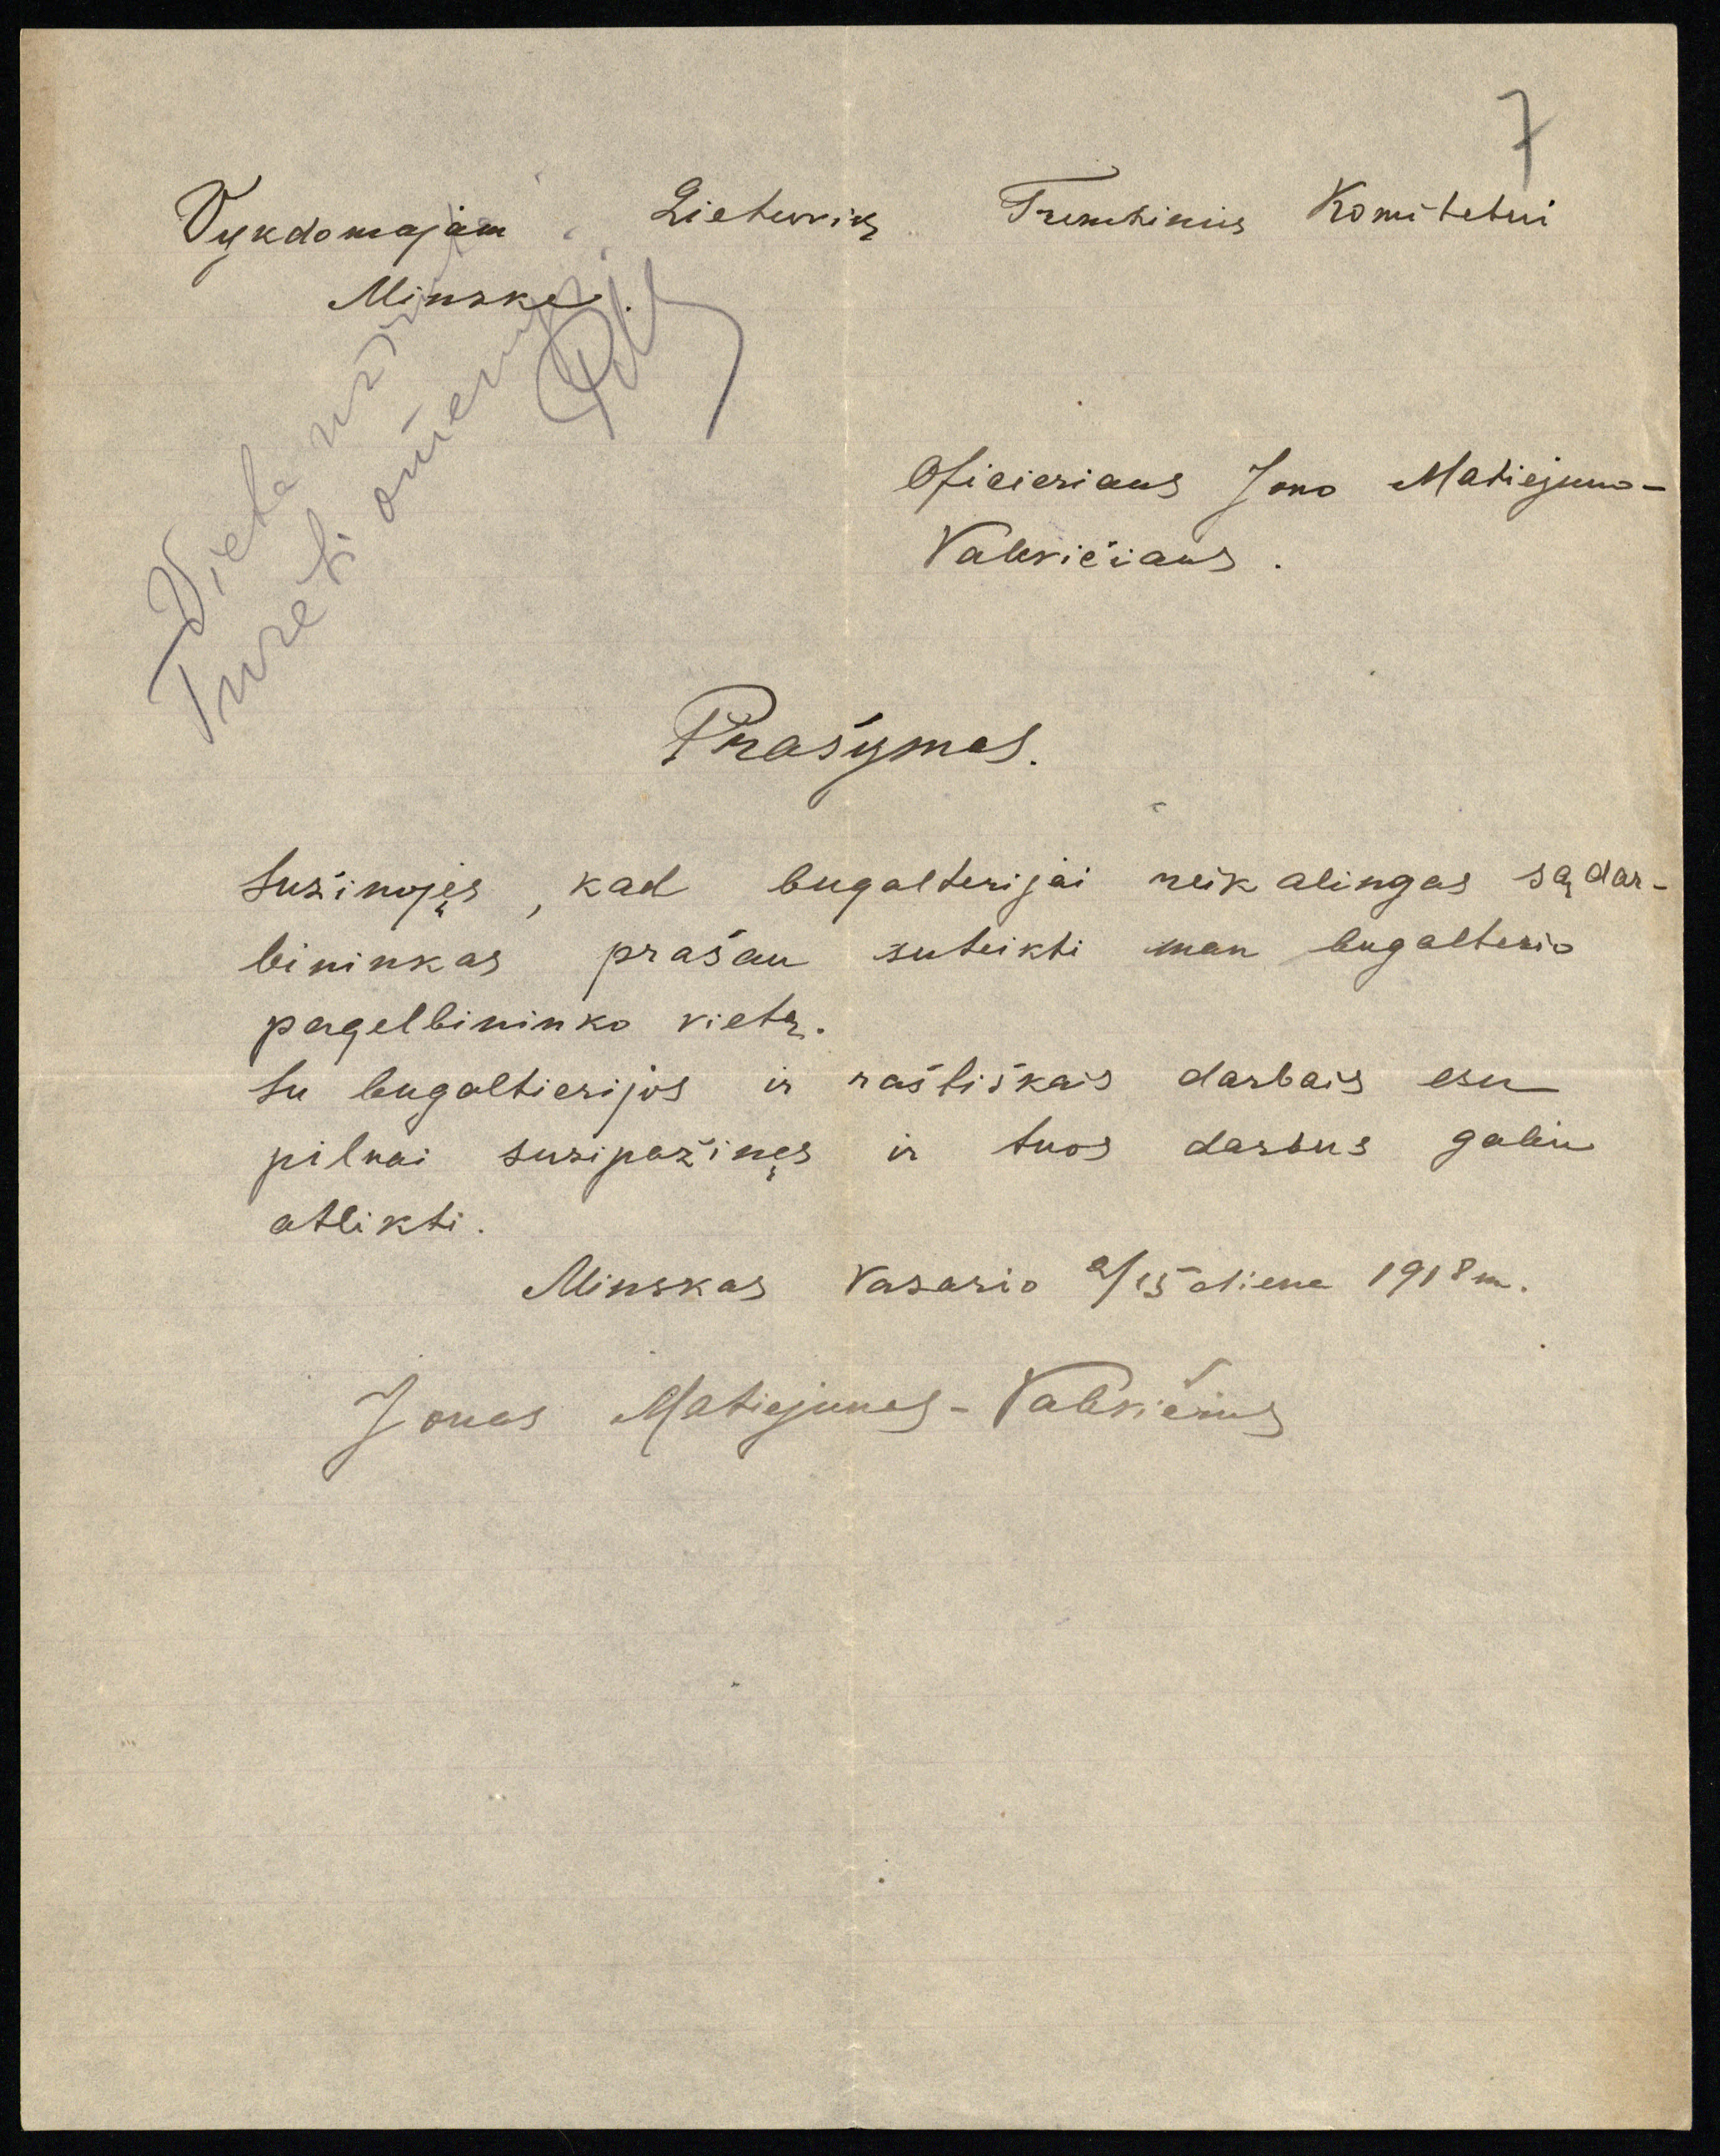 7
Vykdomajam Lietuvių Tremtinių Komitetui
Minske.
Vieta užimta
Turėti omenyje.
Oficieriaus Jono Matiejuno-
Valevičiaus.
Prašymas.
Sužinojęs, kad bugalterijai reikalingas sądar-
bininkas prašau suteikti man bugalterio
pagelbininko vietą.
Su bugaltierijos ir raštiškais darbais esu
pilnai susipažinęs ir tuos darbus galiu
atlikti.
Minskas Vasario 2/15 diena 1918 m.
Jonas Matiejunas-Valevičius